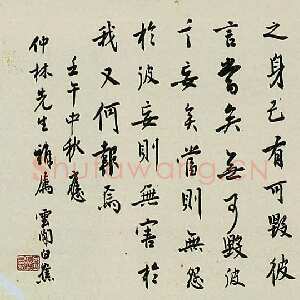 之身己有可毀彼
言當矣無可毀彼
言妄矣當則無怨
於彼妄則無害於
我又何報焉
壬午中秋應
仲林先生雅屬 雲間白蕉
Shufawang.CN